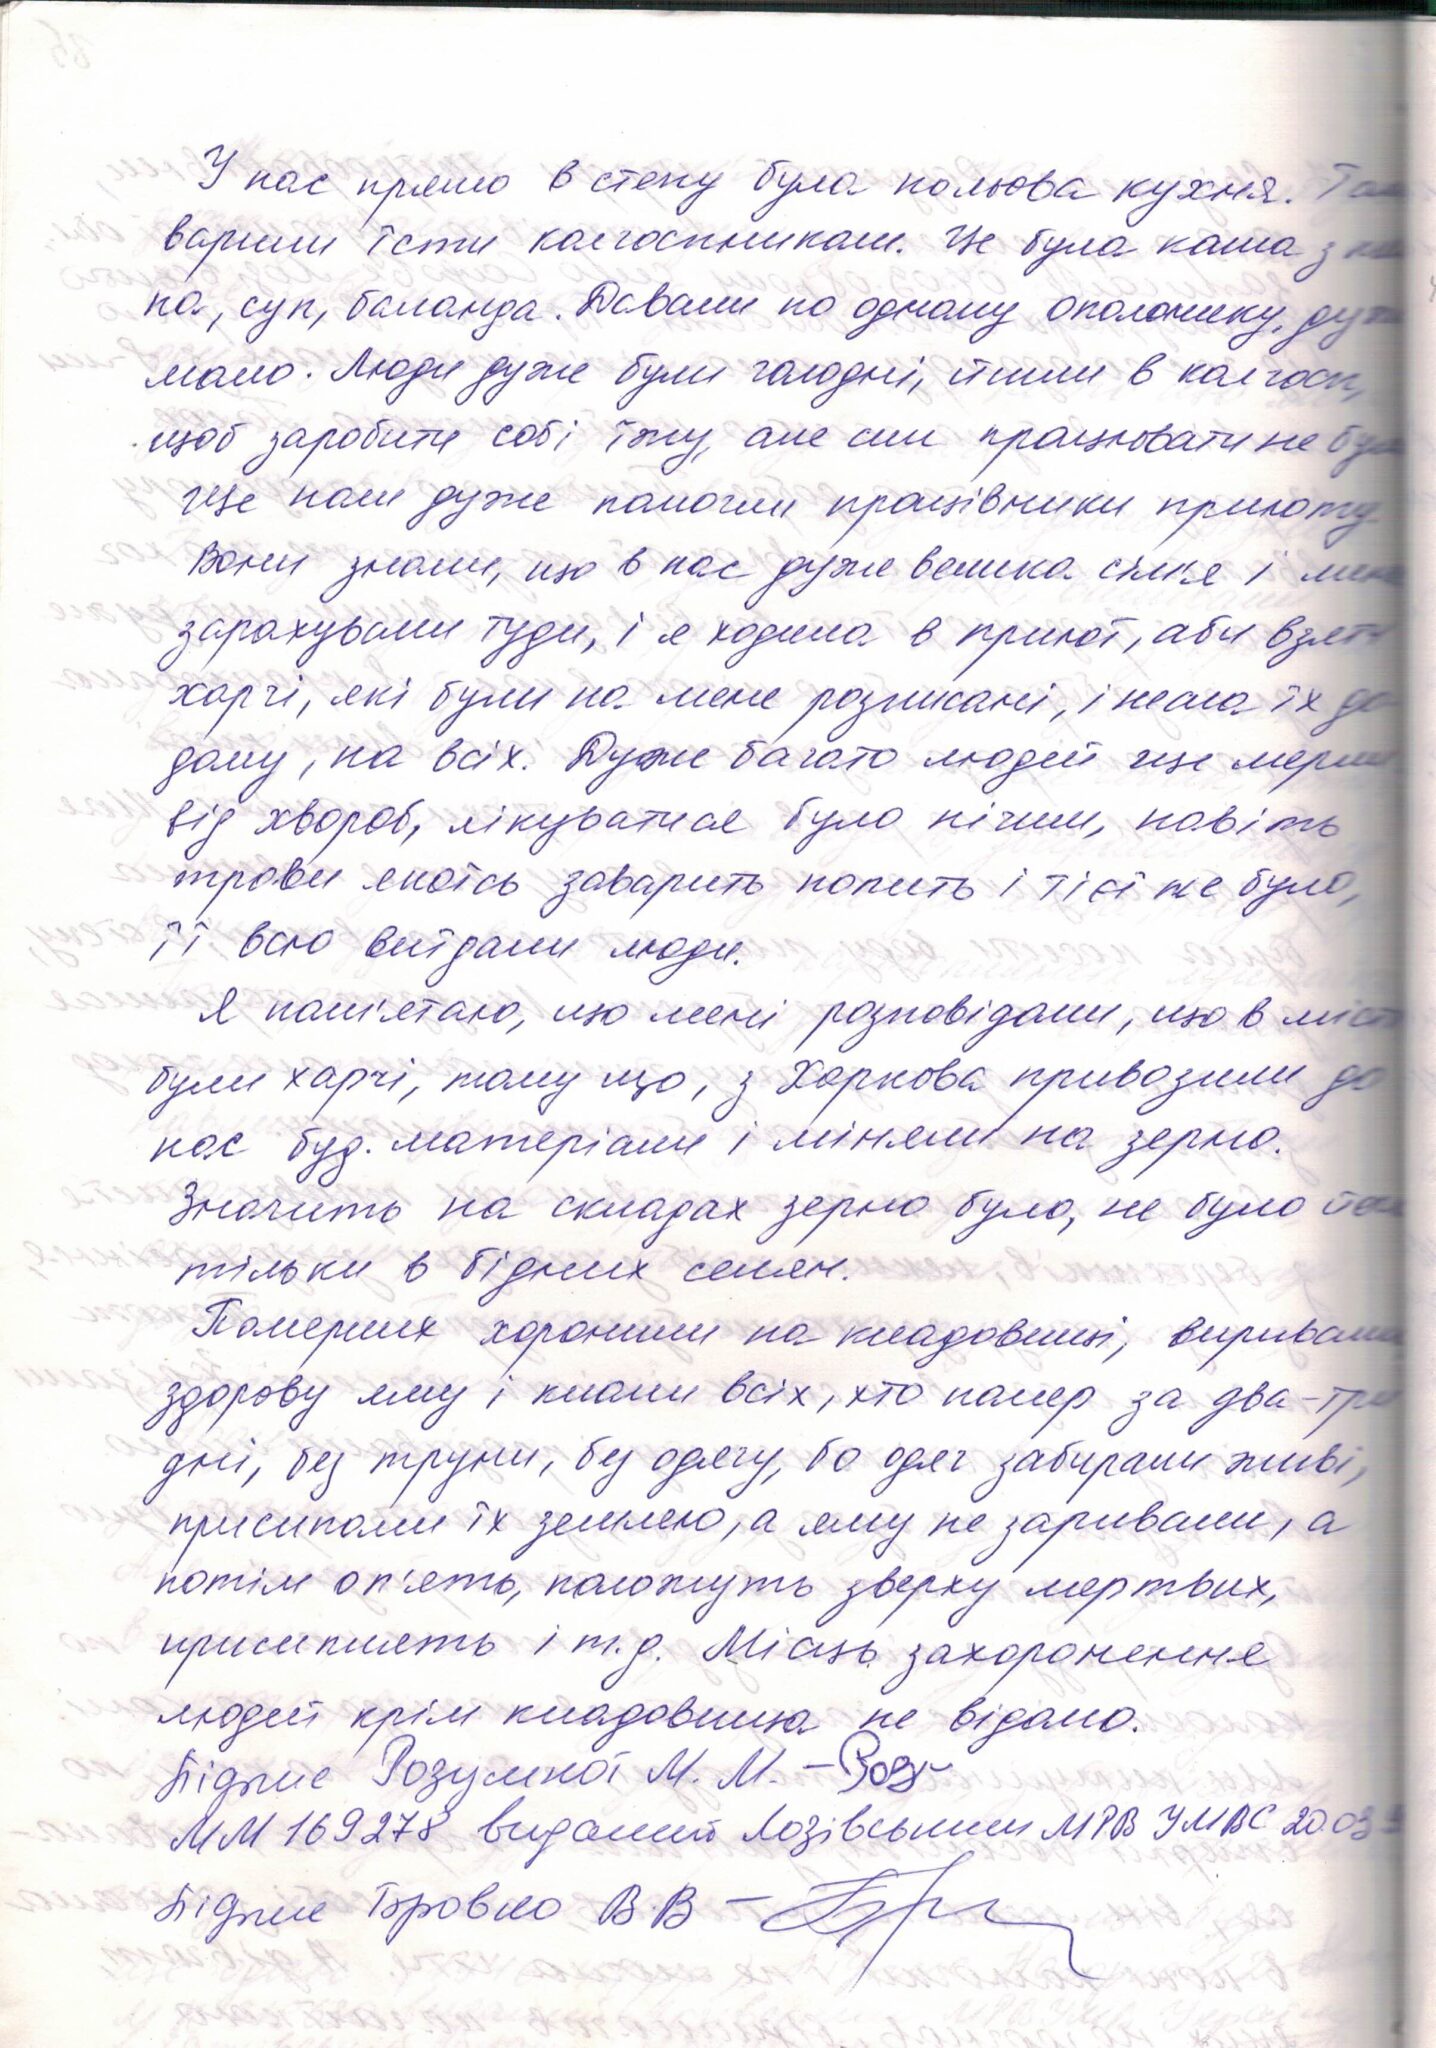 У нас прямо в степу була польова кухня. Там
варили їсти колгоспникам. Це була каша з
па, суп, баланда. Давали по одному ополонику, дуже
мало. Люди дуже були голодні, йшли в колгосп,
щоб заробити собі їжу, але сил працювати не було
Ще нам дуже помогли працівники приюту.
Вони знали, що в нас дуже велика сім'я і мене
зарахували туди, і я ходила в приют, аби взяти
харчі, які були на мене розписані, і несла їх до
дому, на всіх. Дуже багато людей ще мерли
від хвороб, лікуватися було нічим, навіть
трави якоїсь заварить попить і тієї не було,
її всю виїдали люди.
Я пам'ятаю, що мені розповідали, що в місті
були харчі, тому що, з Харкова привозили до
нас буд. матеріали і міняли на зерно.
Значить на складах зерно було, не було його
тільки в бідних селян.
Померших хоронили на кладовищі, виривали
здорову яму і клали всіх, хто помер за два-три
дні, без труни, без одягу, бо одяг забирали живі,
присипали їх землею, а яму не заривали, а
потім оп'ять, положуть зверху мертвих,
присиплять і т.д. Місць захоронення
людей крім кладовища не відомо.
Підпис Розумної М. М. –
ММ 169278 виданий Лозівським МРВ УМВС 20.03
Підпис Бровко В.В –